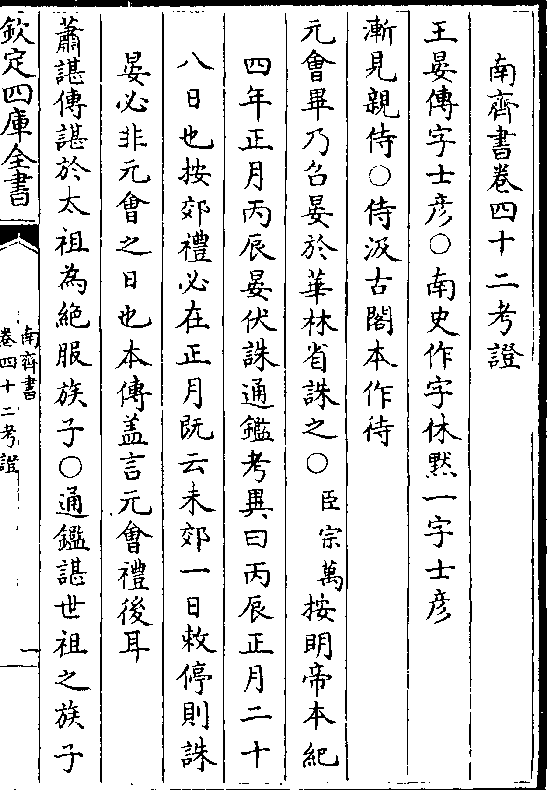 南齊書卷四十二考證
王晏傳字士彦○南史作字休默一字士彦
漸見親侍○侍汲古閣本作待
元會畢乃召晏於華林省誅之○臣宗萬按明帝本紀
四年正月丙辰晏伏誅通鑑考異曰丙辰正月二十
八日也按郊禮必在正月既云未郊一日敕停則誅
晏必非元會之日也本傳盖言元會禮後耳
蕭諶傳諶於太祖為絶服族子○通鑑諶世祖之族子
欽定四庫全書
南齊書
卷四十二考證
一